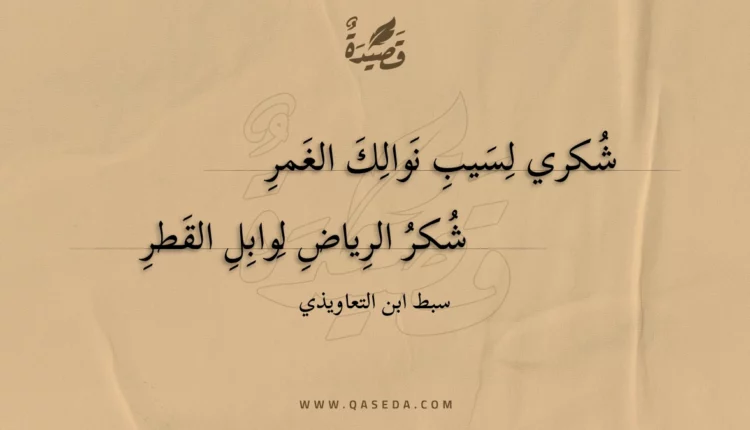 قَصِيدَةٌ
شُكري لِسَيبِ نَوالِكَ الغَمرِ
شُكرُ الرِياضِ لِوابِلِ القَطرِ
سبط ابن التعاويذي
WWW.QASEDA.COM